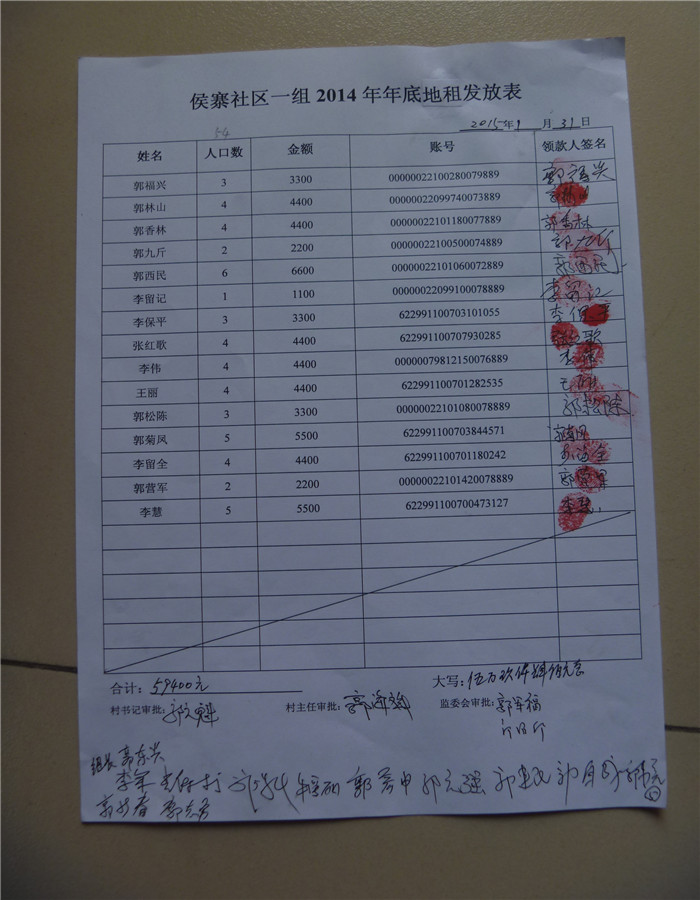 侯寨社区一组 2014 年年底地租发放表
2015年1月31日
54
姓名 人口数 金额 账号 领款人签名
郭福兴 3 3300 00000022100280079889 郭福兴
郭林山 4 4400 00000022099740073889
郭香林 4 4400 00000022101180077889 郭香林
郭九斤 2 2200 00000022100500074889 郭九斤
郭西民 6 6600 00000022101060072889 郭西民
李留记 1 1100 00000022099100078889 李留记
李保平 3 3300 622991100703101055 李保平
张红歌 4 4400 622991100707930285 张红歌
李伟 4 4400 00000079812150076889 李伟
王丽 4 4400 622991100701282535 王丽
郭松陈 3 3300 00000022101080078889 郭松陈
郭菊凤 5 5500 622991100703844571
李留全 4 4400 622991100701180242 李留全
郭营军 2 2200 00000022101420078889 郭营军
李慧 5 5500 622991100700473127 李慧
合计：59400元 大写：伍万玖仟肆佰元
村书记审批： 村主任审批： 监委会审批：郭军福
组长 郭东兴
李军 郭元强